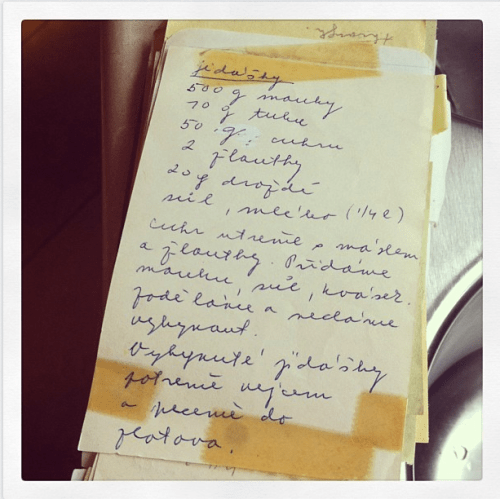 jidášky
500 g mouky
70 g tuku
50 g cukru
2 žloutky
20 g droždí
sůl, mléko (1/4 l)
cukr utřeme s máslem
a žloutky. Přidáme
mouku, sůl, kvásek.
zaděláme a necháme
vykynout.
Vykynuté jidášky
potřeme vejcem
a pečeme do
zlatova.